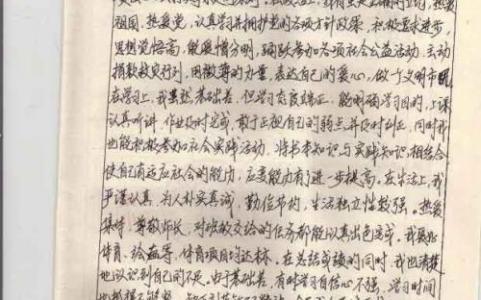 祖国,热爱党,认真学习并拥护党的各项方针政策,积极要求进步,
思想觉悟高,能爱憎分明,踊跃参加各项社会公益活动,主动
捐款救灾行列,用微薄的力量,表达自己的爱心,做个文明市民
在学习上,我虽然基础差,但学习态度端正,能明确学习目的,上课
认真听讲,作业及时完成,敢于正视自己的弱点并及时纠正,同时我
也能积极参加社会实践活动,将书本知识与实践知识相结合
使自己有适应社会的能力,应变能力有进一步提高,在生活上,我
严谨认真,为人朴实真诚,勤俭节约,生活独立性较强。热爱
集体,尊敬师长,对班级交给的任务都能认真出色完成。我爱好
体育、绘画等,体育项目均达标。在总结成绩的同时,我也清楚
地认识到自己的不足。由于基础差,有时学习自信心不强,学习时间